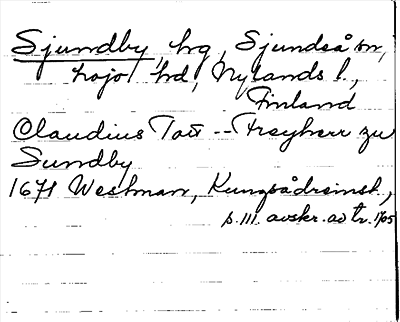 Sjundby, hg, Sjundså sn,
Lojo hd, Nylands l.,
Finland
Claudius Tott -- Freyherr zu
Sundby
1671 Westman, Kungsådrainsk.,
s. 111. avskr. av tr. 1705